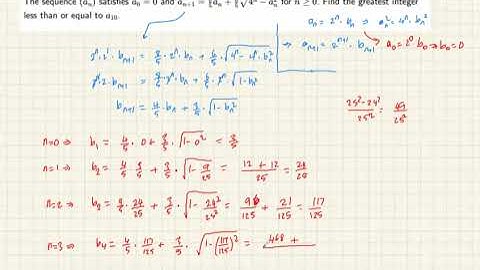 The sequence (aₙ) satisfies a₀ = 0 and aₙ₊₁ = 8/5 aₙ + 6/5 √(4ⁿ − aₙ²) for n ≥ 0. Find the greatest integer
less than or equal to a₁₀.
aₙ = 2ⁿ · bₙ ⇒ aₙ² = 4ⁿ · bₙ²
aₙ₊₁ = 2ⁿ⁺¹ · bₙ₊₁
a₀ = 2⁰ b₀ ⇒ b₀ = 0
2ⁿ · 2¹ · bₙ₊₁ = 8/5 · 2ⁿ · bₙ + 6/5 · √(4ⁿ − 4ⁿ · bₙ²)
2ⁿ · 2 · bₙ₊₁ = 8/5 · 2ⁿ · bₙ + 6/5 · 2ⁿ · √(1 − bₙ²)
bₙ₊₁ = 4/5 · bₙ + 3/5 · √(1 − bₙ²)
(25² − 24²)/25² = 49/25²
n=0 ⇒ b₁ = 4/5 · 0 + 3/5 · √(1 − 0²) = 3/5
n=1 ⇒ b₂ = 4/5 · 3/5 + 3/5 · √(1 − 9/25) = (12 + 12)/25 = 24/25
n=2 ⇒ b₃ = 4/5 · 24/25 + 3/5 · √(1 − 24²/25²) = 96/125 + 21/125 = 117/125
n=3 ⇒ b₄ = 4/5 · 117/125 + 3/5 · √(1 − (117/125)²) = 468 +